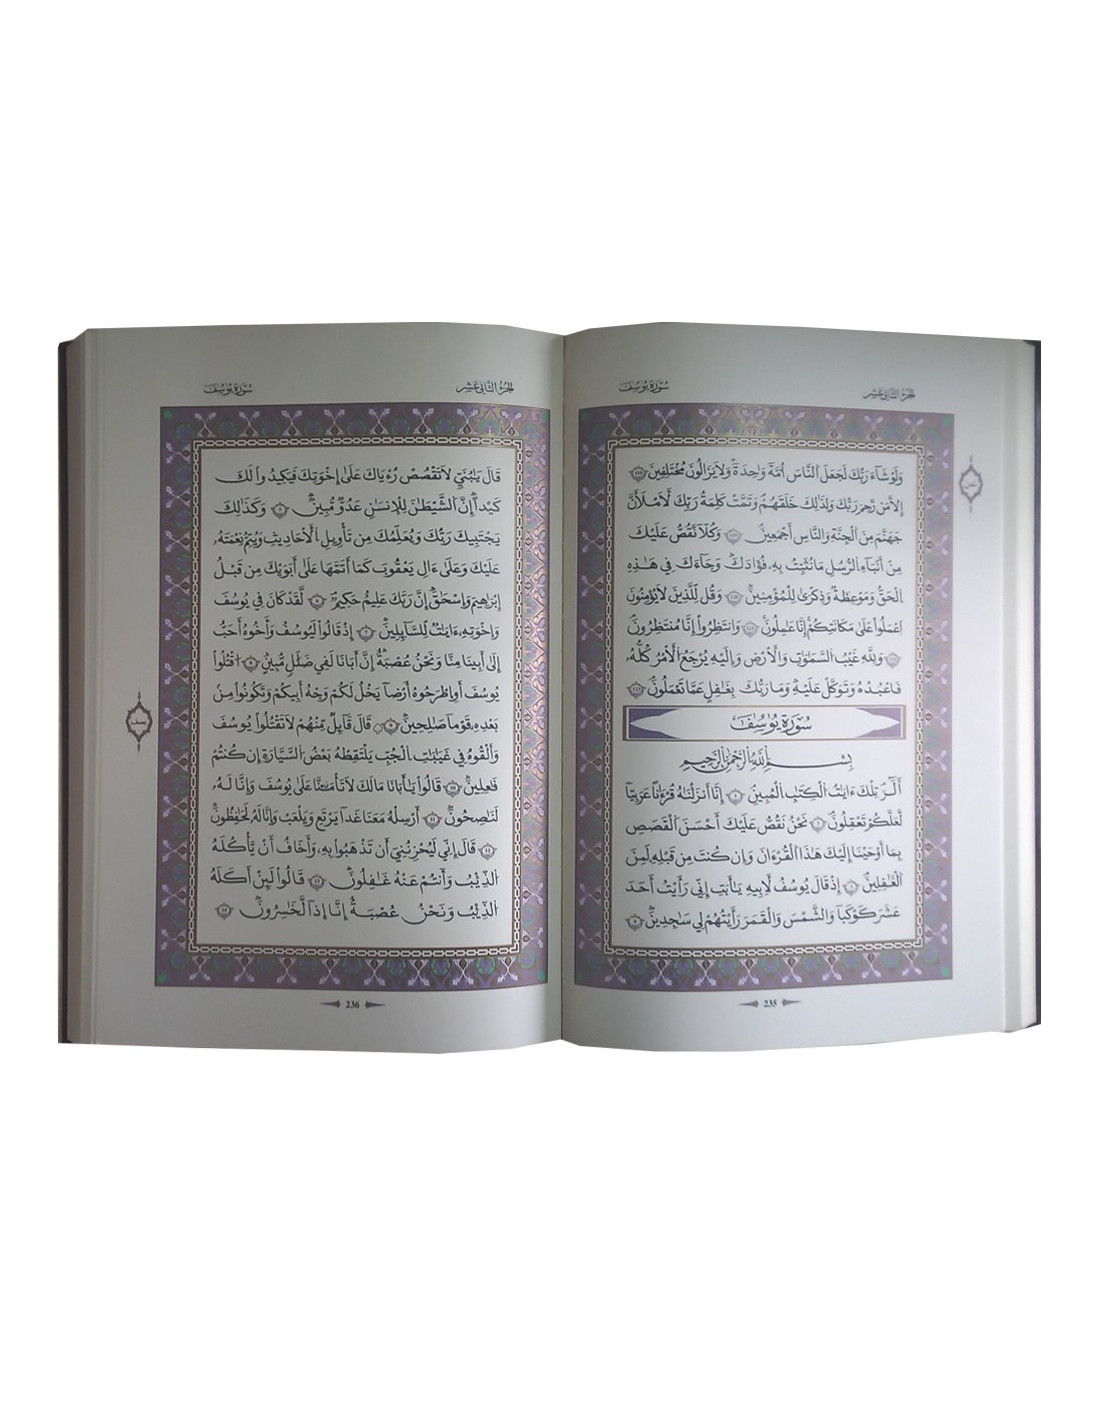 الجزء الثاني عشر
سورة يوسف
وَلَوْ شَآءَ رَبُّكَ لَجَعَلَ النَّاسَ أُمَّةً وَٰحِدَةً وَلَا يَزَالُونَ مُخْتَلِفِينَ
إِلَّا مَن رَّحِمَ رَبُّكَ وَلِذَٰلِكَ خَلَقَهُمْ وَتَمَّتْ كَلِمَةُ رَبِّكَ لَأَمْلَأَنَّ
جَهَنَّمَ مِنَ الْجِنَّةِ وَالنَّاسِ أَجْمَعِينَ وَكُلًّا نَّقُصُّ عَلَيْكَ
مِنْ أَنۢبَآءِ الرُّسُلِ مَا نُثَبِّتُ بِهِۦ فُؤَادَكَ وَجَآءَكَ فِي هَٰذِهِ
الْحَقُّ وَمَوْعِظَةٌ وَذِكْرَىٰ لِلْمُؤْمِنِينَ وَقُل لِّلَّذِينَ لَا يُؤْمِنُونَ
اَعْمَلُوا۟ عَلَىٰ مَكَانَتِكُمْ إِنَّا عَٰمِلُونَ وَانتَظِرُوٓا۟ إِنَّا مُنتَظِرُونَ
وَلِلَّهِ غَيْبُ السَّمَٰوَٰتِ وَالْأَرْضِ وَإِلَيْهِ يُرْجَعُ الْأَمْرُ كُلُّهُۥ
فَاعْبُدْهُ وَتَوَكَّلْ عَلَيْهِ وَمَا رَبُّكَ بِغَٰفِلٍ عَمَّا تَعْمَلُونَ
سُورَةُ يُوسُفَ
بِسْمِ اللَّهِ الرَّحْمَٰنِ الرَّحِيمِ
أَلَٓرٰ تِلْكَ ءَايَٰتُ الْكِتَٰبِ الْمُبِينِ إِنَّآ أَنزَلْنَٰهُ قُرْءَٰنًا عَرَبِيًّا
لَّعَلَّكُمْ تَعْقِلُونَ نَحْنُ نَقُصُّ عَلَيْكَ أَحْسَنَ الْقَصَصِ
بِمَآ أَوْحَيْنَآ إِلَيْكَ هَٰذَا الْقُرْءَانَ وَإِن كُنتَ مِن قَبْلِهِۦ لَمِنَ
الْغَٰفِلِينَ إِذْ قَالَ يُوسُفُ لِأَبِيهِ يَٰٓأَبَتِ إِنِّي رَأَيْتُ أَحَدَ
عَشَرَ كَوْكَبًا وَالشَّمْسَ وَالْقَمَرَ رَأَيْتُهُمْ لِي سَٰجِدِينَ
235
الجزء الثاني عشر
سورة يوسف
قَالَ يَٰبُنَيِّ لَا تَقْصُصْ رُءْيَاكَ عَلَىٰٓ إِخْوَتِكَ فَيَكِيدُوا۟ لَكَ
كَيْدًا إِنَّ الشَّيْطَٰنَ لِلْإِنسَٰنِ عَدُوٌّ مُّبِينٌ وَكَذَٰلِكَ
يَجْتَبِيكَ رَبُّكَ وَيُعَلِّمُكَ مِن تَأْوِيلِ الْأَحَادِيثِ وَيُتِمُّ نِعْمَتَهُۥ
عَلَيْكَ وَعَلَىٰٓ ءَالِ يَعْقُوبَ كَمَآ أَتَمَّهَا عَلَىٰٓ أَبَوَيْكَ مِن قَبْلُ
إِبْرَٰهِيمَ وَإِسْحَٰقَ إِنَّ رَبَّكَ عَلِيمٌ حَكِيمٌ لَّقَدْ كَانَ فِي يُوسُفَ
وَإِخْوَتِهِۦٓ ءَايَٰتٌ لِّلسَّآئِلِينَ إِذْ قَالُوا۟ لَيُوسُفُ وَأَخُوهُ أَحَبُّ
إِلَىٰٓ أَبِينَا مِنَّا وَنَحْنُ عُصْبَةٌ إِنَّ أَبَانَا لَفِي ضَلَٰلٍ مُّبِينٍ اقْتُلُوا۟
يُوسُفَ أَوِ اطْرَحُوهُ أَرْضًا يَخْلُ لَكُمْ وَجْهُ أَبِيكُمْ وَتَكُونُوا۟ مِنۢ
بَعْدِهِۦ قَوْمًا صَٰلِحِينَ قَالَ قَآئِلٌ مِّنْهُمْ لَا تَقْتُلُوا۟ يُوسُفَ
وَأَلْقُوهُ فِي غَيَٰبَٰتِ الْجُبِّ يَلْتَقِطْهُ بَعْضُ السَّيَّارَةِ إِن كُنتُمْ
فَٰعِلِينَ قَالُوا۟ يَٰٓأَبَانَا مَا لَكَ لَا تَأْمَ۬نَّا عَلَىٰ يُوسُفَ وَإِنَّا لَهُۥ
لَنَٰصِحُونَ أَرْسِلْهُ مَعَنَا غَدًا يَرْتَعِ وَيَلْعَبْ وَإِنَّا لَهُۥ لَحَٰفِظُونَ
قَالَ إِنِّي لَيُحْزِنُنِيَ أَن تَذْهَبُوا۟ بِهِۦ وَأَخَافُ أَنْ يَّأْكُلَهُ
الذِّيبُ وَأَنتُمْ عَنْهُ غَٰفِلُونَ قَالُوا۟ لَئِنْ أَكَلَهُ
الذِّيبُ وَنَحْنُ عُصْبَةٌ إِنَّآ إِذًا لَّخَٰسِرُونَ
236